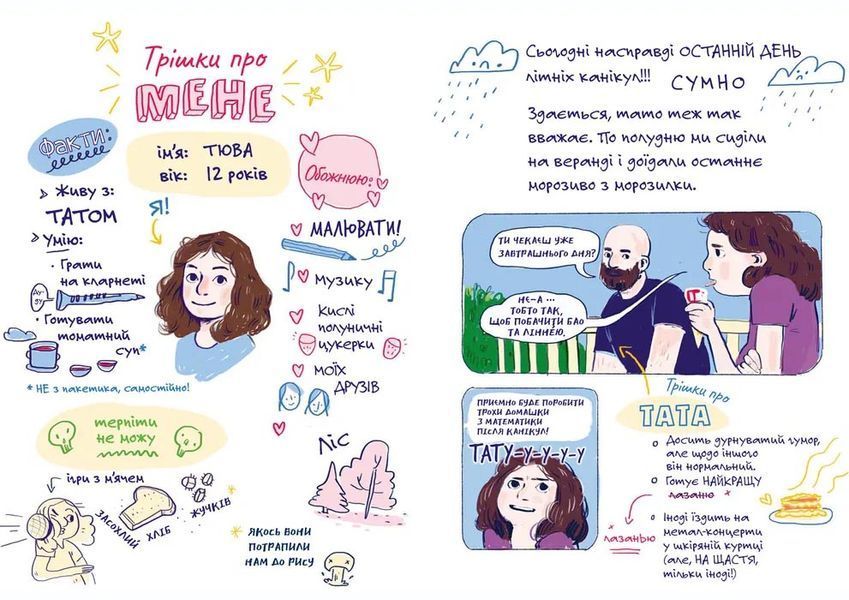 Трішки про
МЕНЕ
ФАКТИ:
ім'я: ТЮВА
вік: 12 років
Обожнюю:
Живу з:
ТАТОМ
Я!
МАЛЮВАТИ!
Умію:
Грати
на кларнеті
ДУ-
ДУ
Музику
Готувати
томатний
суп*
Кислі
полуничні
цукерки
МОЇХ
ДРУЗІВ
* НЕ з пакетика, самостійно!
терпіти
не можу
ЛІС
ігри з м'ячем
ЗАСОХЛИЙ
ХЛІБ
ЖУЧКІВ
* ЯКОСЬ ВОНИ
ПОТРАПИЛИ
НАМ ДО РИСУ
Сьогодні насправді ОСТАННІЙ ДЕНЬ
літніх канікул!!!
СУМНО
Здається, тато теж так
вважає. По полудню ми сиділи
на веранді і доїдали останнє
морозиво з морозилки.
ТИ ЧЕКАЄШ УЖЕ
ЗАВТРАШНЬОГО ДНЯ?
НЕ-А ...
ТОБТО ТАК,
ЩОБ ПОБАЧИТИ БАО
ТА ЛІННЕЮ.
ПРИЄМНО БУДЕ ПОРОБИТИ
ТРОХИ ДОМАШКИ
З МАТЕМАТИКИ
ПІСЛЯ КАНІКУЛ!
ТАТУ-У-У-У-У
Трішки про
ТАТА
Досить дурнуватий гумор,
але щодо іншого
він нормальний.
Готує НАЙКРАЩУ
лазаню
лазанью
Іноді їздить на
метал-концерти
у шкіряній куртці
(але, НА ЩАСТЯ,
тільки іноді!)